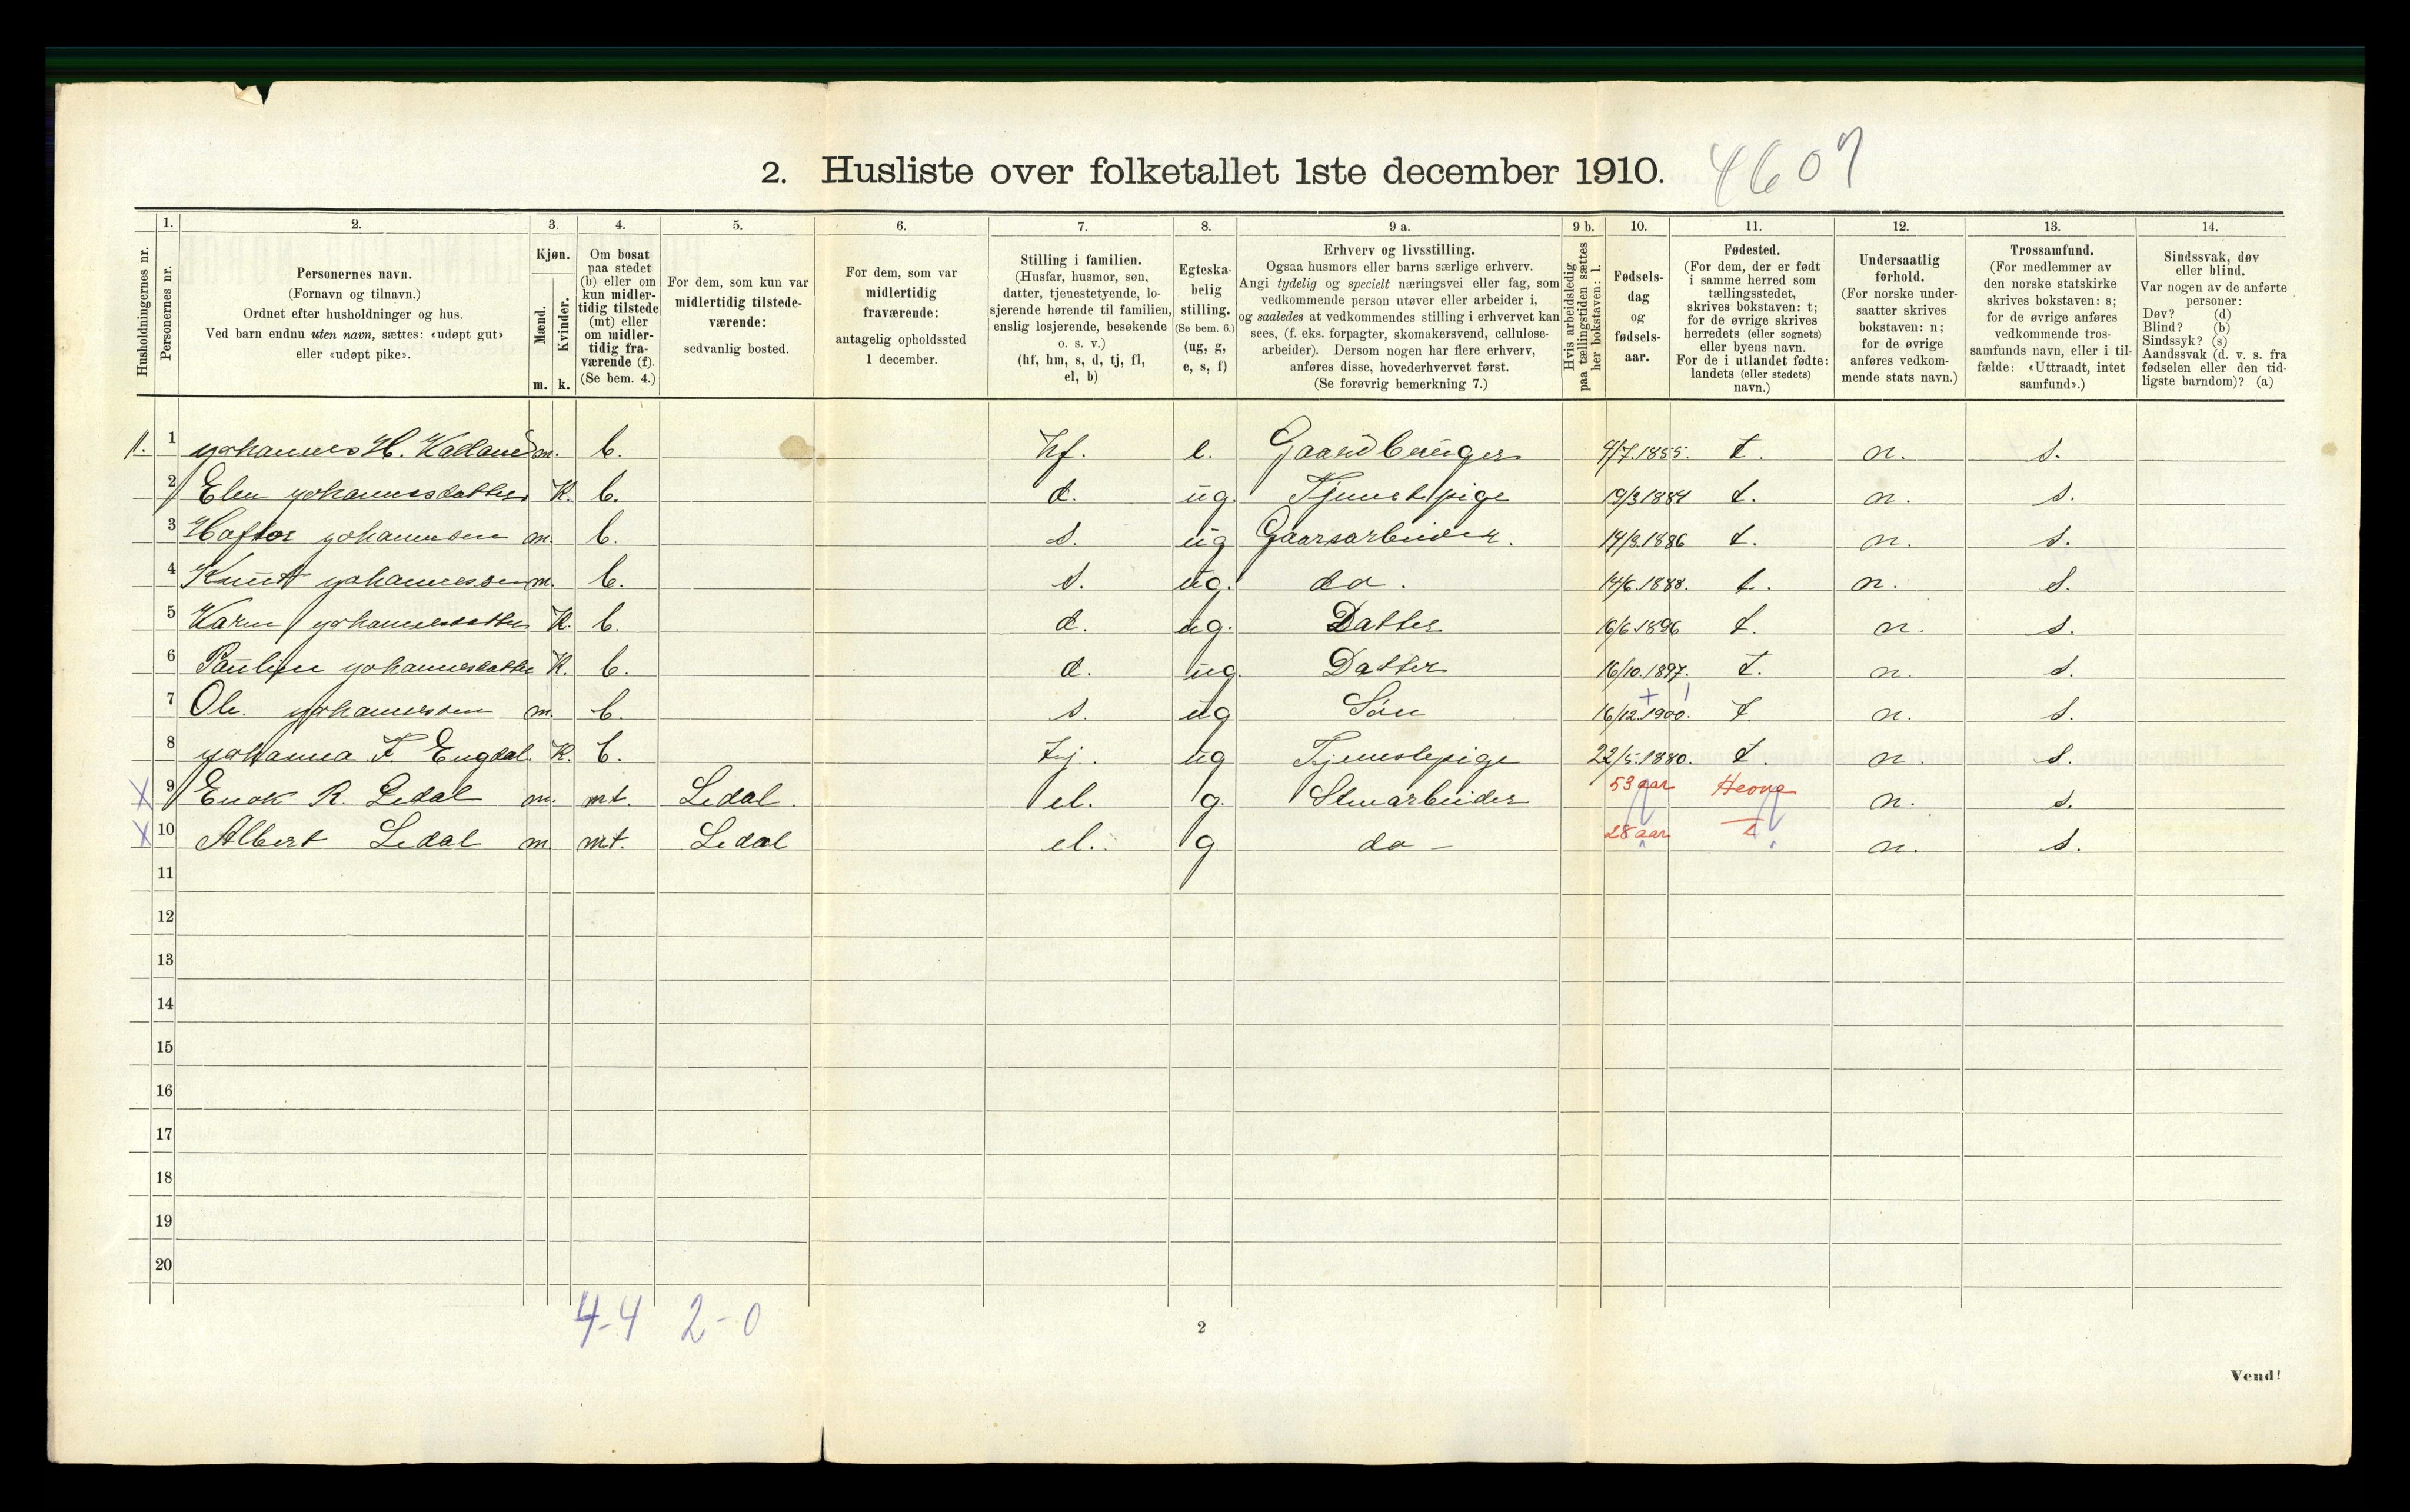 2. Husliste over folketallet 1ste december 1910. 4607
Husholdningernes nr.
1. Personernes nr.
2. Personernes navn.
(Fornavn og tilnavn.)
Ordnet efter husholdninger og hus.
Ved barn endnu uten navn, sættes: «udøpt gut»
eller «udøpt pike».
3. Kjøn.
Mænd. Kvinder.
m. k.
4. Om bosat
paa stedet
(b) eller om
kun midler-
tidig tilstede
(mt) eller
om midler-
tidig fra-
værende (f).
(Se bem. 4.)
5. For dem, som kun var
midlertidig tilstede-
værende:
sedvanlig bosted.
6. For dem, som var
midlertidig
fraværende:
antagelig opholdssted
1 december.
7. Stilling i familien.
(Husfar, husmor, søn,
datter, tjenestetyende, lo-
sjerende hørende til familien,
enslig losjerende, besøkende
o. s. v.)
(hf, hm, s, d, tj, fl,
el, b)
8. Egteska-
belig
stilling.
(Se bem. 6.)
(ug, g,
e, s, f)
9 a. Erhverv og livsstilling.
Ogsaa husmors eller barns særlige erhverv.
Angi tydelig og specielt næringsvei eller fag, som
vedkommende person utøver eller arbeider i,
og saaledes at vedkommendes stilling i erhvervet kan
sees, (f. eks. forpagter, skomakersvend, cellulose-
arbeider). Dersom nogen har flere erhverv,
anføres disse, hovederhvervet først.
(Se forøvrig bemerkning 7.)
9 b. Hvis arbeidsledig
paa tællingstiden sættes
her bokstaven: l.
10. Fødsels-
dag
og
fødsels-
aar.
11. Fødested.
(For dem, der er født
i samme herred som
tællingsstedet,
skrives bokstaven: t;
for de øvrige skrives
herredets (eller sognets)
eller byens navn.
For de i utlandet fødte:
landets (eller stedets)
navn.)
12. Undersaatlig
forhold.
(For norske under-
saatter skrives
bokstaven: n;
for de øvrige
anføres vedkom-
mende stats navn.)
13. Trossamfund.
(For medlemmer av
den norske statskirke
skrives bokstaven: s;
for de øvrige anføres
vedkommende tros-
samfunds navn, eller i til-
fælde: «Uttraadt, intet
samfund».)
14. Sindssvak, døv
eller blind.
Var nogen av de anførte
personer:
Døv? (d)
Blind? (b)
Sindssyk? (s)
Aandssvak (d. v. s. fra
fødselen eller den tid-
ligste barndom)? (a)
1 Johannes H. Kalland m. b. hf. e. Gaardbruger 4/7.1855. t. n. s.
2 Elen Johannesdatter K. b. d. ug. Tjenestepige 19/3 1884 t. n. s.
3 Haftor Johannesen m. b. s. ug Gaarsarbeider. 14/3.1886 t. n. s.
4 Knut Johannessen m. b. s. ug. do. 14/6.1888. t. n. s.
5 Karen Johannesdatter K. b. d. ug. Datter 16/6.1896 t. n. s.
6 Pauline Johannesdatter K. b. d. ug. Datter 16/10.1897. t. n. s.
7 Ole Johannessen m. b. s. ug Søn 16/12.1900. t. n. s.
8 Johanna F. Engdal. K. b. tj. ug Tjenestepige 22/5.1880. t. n. s.
X 9 Enok R. Ledal m. mt. Ledal. el. g. Stenarbeider 53 aar n. s.
X 10 Albert Ledal m mt. Ledal el. g do - 28 aar t n. s.
11
12
13
14
15
16
17
18
19
20
4-4 2-0
2
Vend!